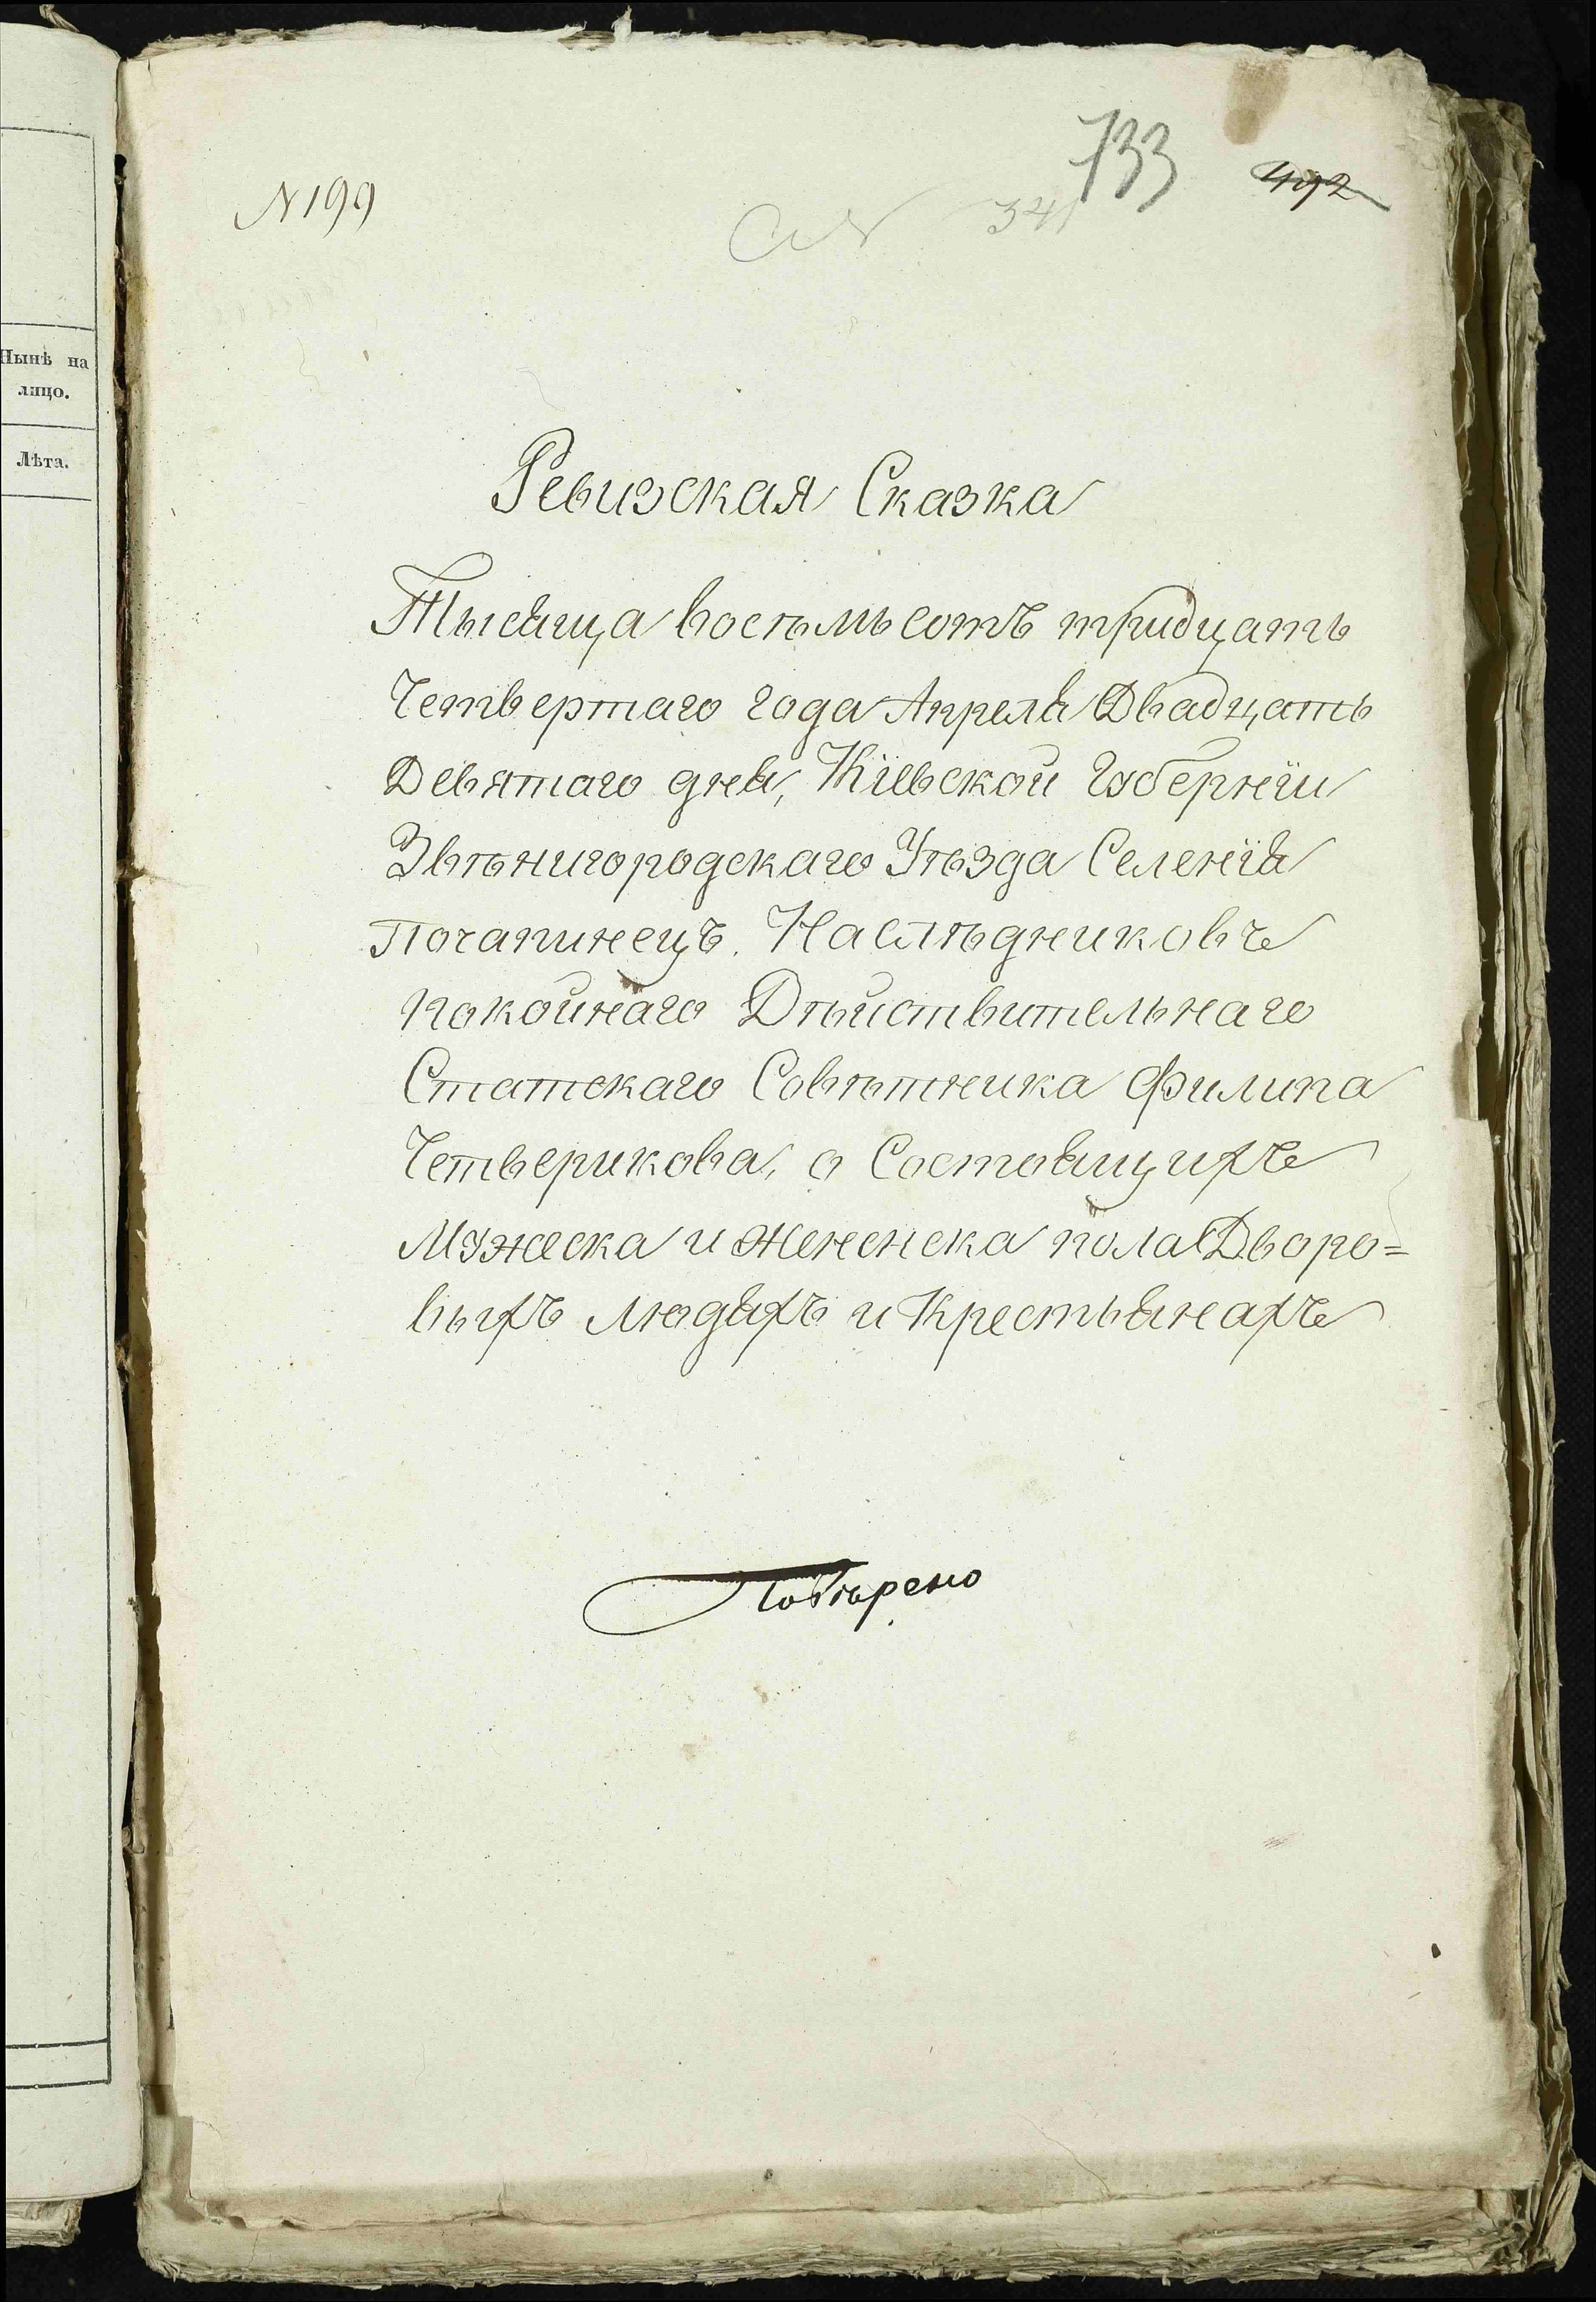 Нынѣ на
лицо.
Лѣта.
733
492
N 199
341
Ревизская Сказка
Тысяща восѣмьсотъ тридцать
Четвертаго года Апреля Двадцать
Девятаго дня, Кіевской Губерніи
Звѣнигородскаго Уѣзда Селенія
Почапинецъ. Наслѣдниковъ
покойнаго Дѣйствительнаго
Статскаго Совѣтника Филипа
Четверикова, о Состоящихъ
Мужеска и Женска пола Дворо=
выхъ людяхъ и Крестьянахъ
Повѣрено